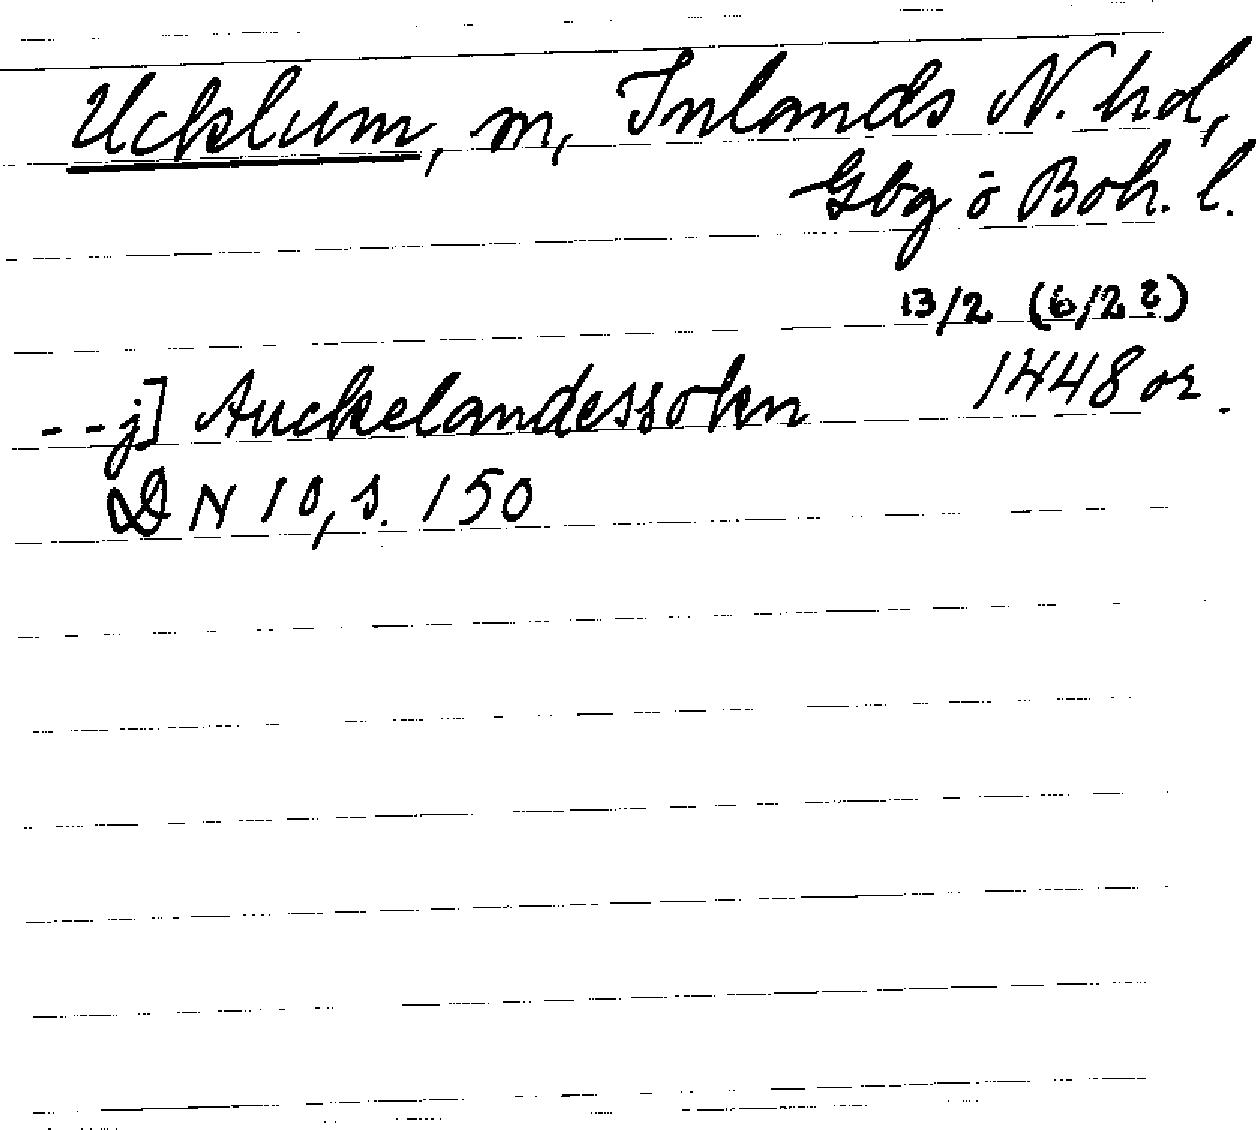 Ucklum, m, Inlands N. hd,
Gbg o Boh. l.
13/2 (6/2?)
--j] Auckelandessokn 1448 or.
DN 10, s. 150